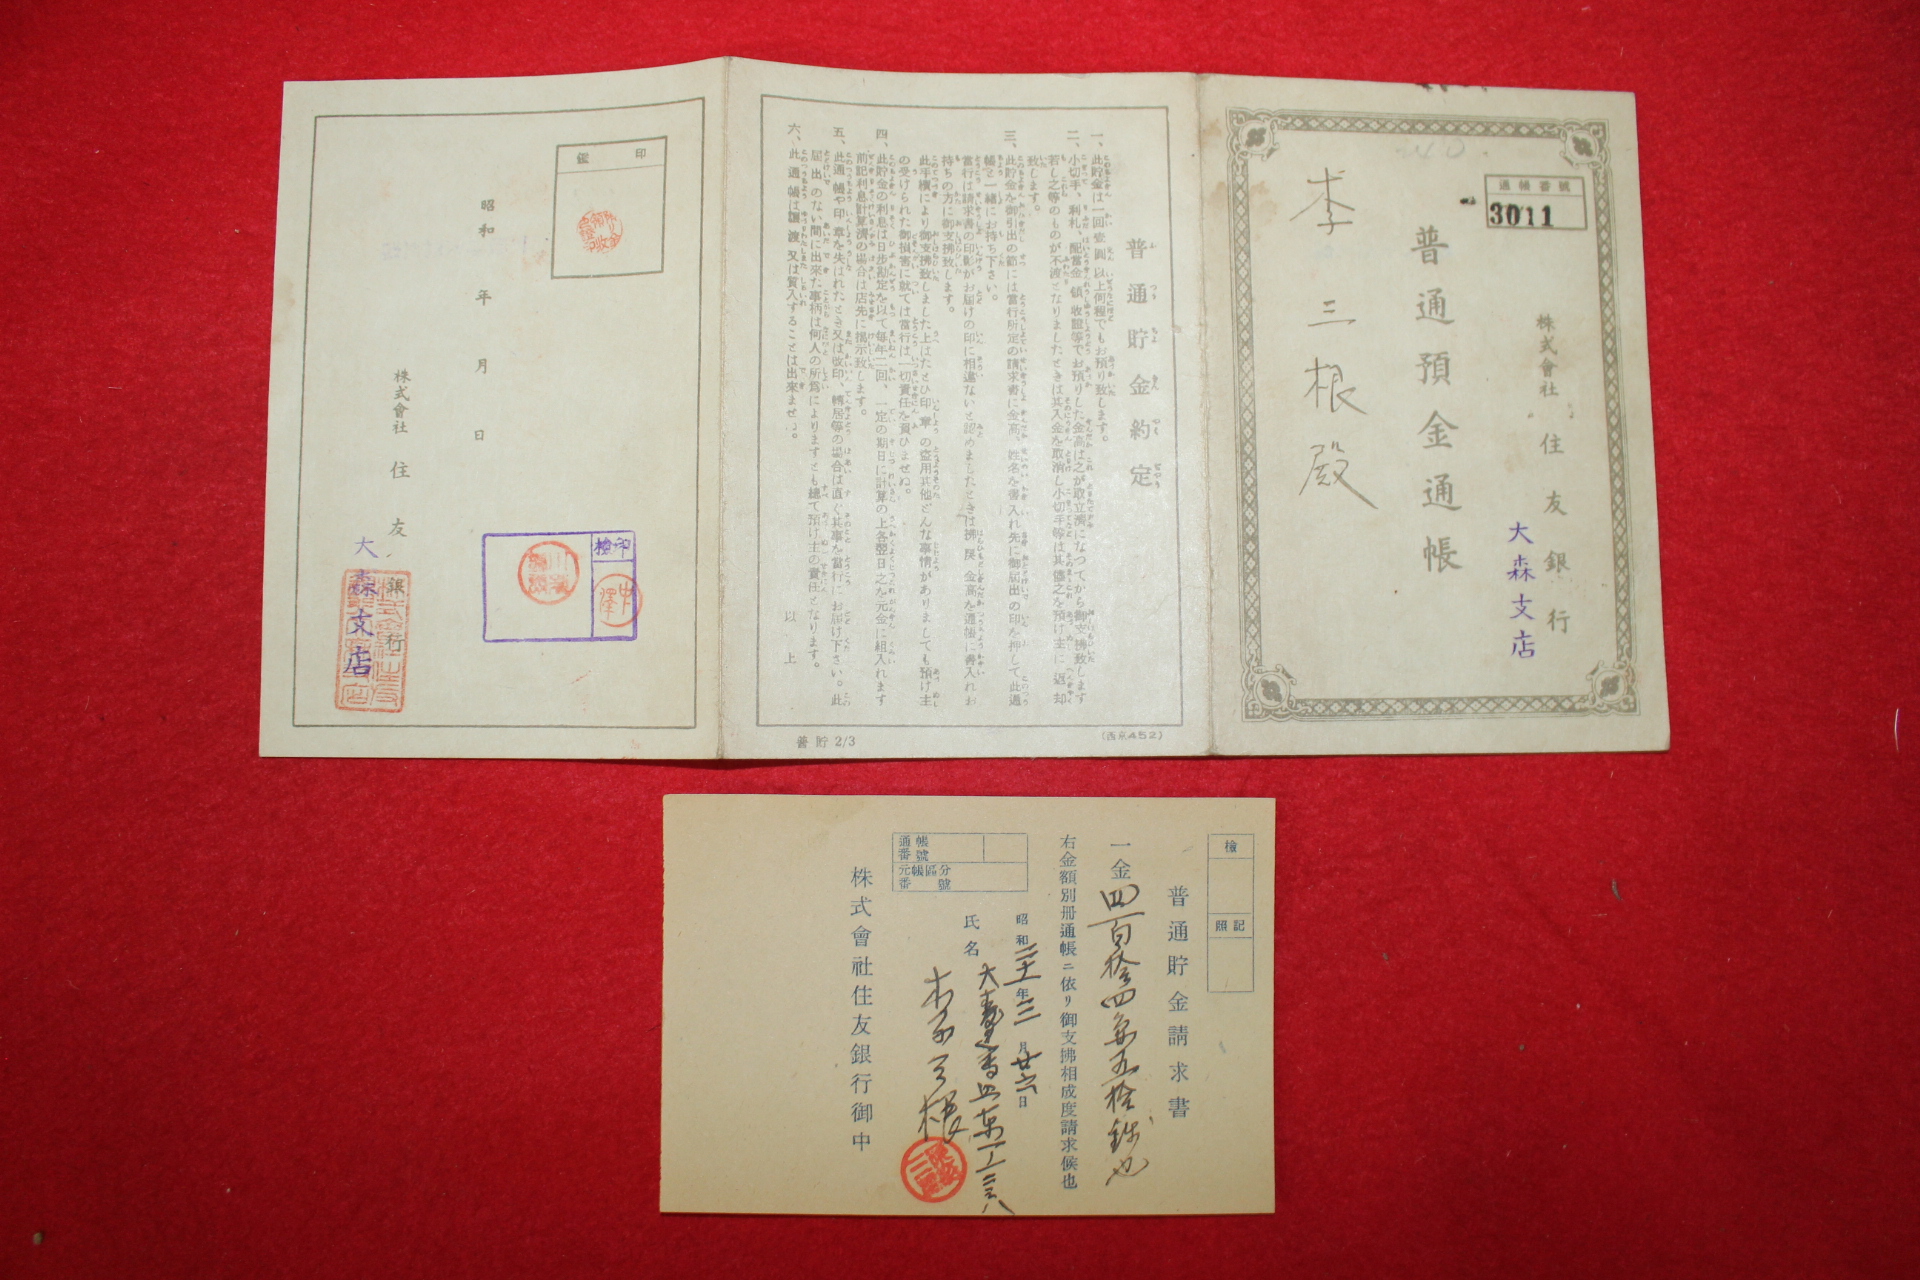 通帳番號
3011
株式會社 住友銀行
大森支店
普通預金通帳
李三根殿
普通貯金約定
一、此貯金は一回壹圓以上何程でもお預り致します。
二、小切手、利札、配當金領收證等でお預りした金高は之が取立濟になつてから御支拂致します
若し之等のものが不渡となりましたときは其入金を取消し小切手等は其儘之を預け主に返却
致します。
三、此貯金を御引出の節には當行所定の請求書に金高、姓名を書入れ先に御屆出の印を押して此通
帳と一緒にお持ち下さい。
當行は請求書の印影がお屆けの印に相違ないと認めましたときは拂戾金高を通帳に書入れお
持ちの方に御支拂致します。
此手續により御支拂致しました上はたとひ印章の盜用其他どんな事情がありましても預け主
の受けられた御損害に就ては當行は一切責任を負ひませぬ。
四、此貯金の利息は日步勘定を以て每年二回、一定の期日に計算の上各翌日之を元金に組入れます
前記利息計算濟の場合は店先に揭示致します。
五、此通帳や印章を失はれたとき又は改印、轉居等の場合は直ぐ其事を當行にお屆け下さい。此
屆出のない間に出來た事柄は何人の所爲によりますとも總て預け主の責任となります。
六、此通帳は讓渡又は質入することは出來ませぬ。
以上
普貯 2/3
印鑑
昭和 年 月 日
株式會社 住友銀行
大森支店
檢印
中澤
檢
照記
普通貯金請求書
一金四百拾四円五拾銭也
右金額別冊通帳ニ依リ御支拂相成度請求候也
通帳番號
元帳區分番號
昭和二十一年三月廿六日
氏名
李三根
株式會社住友銀行御中